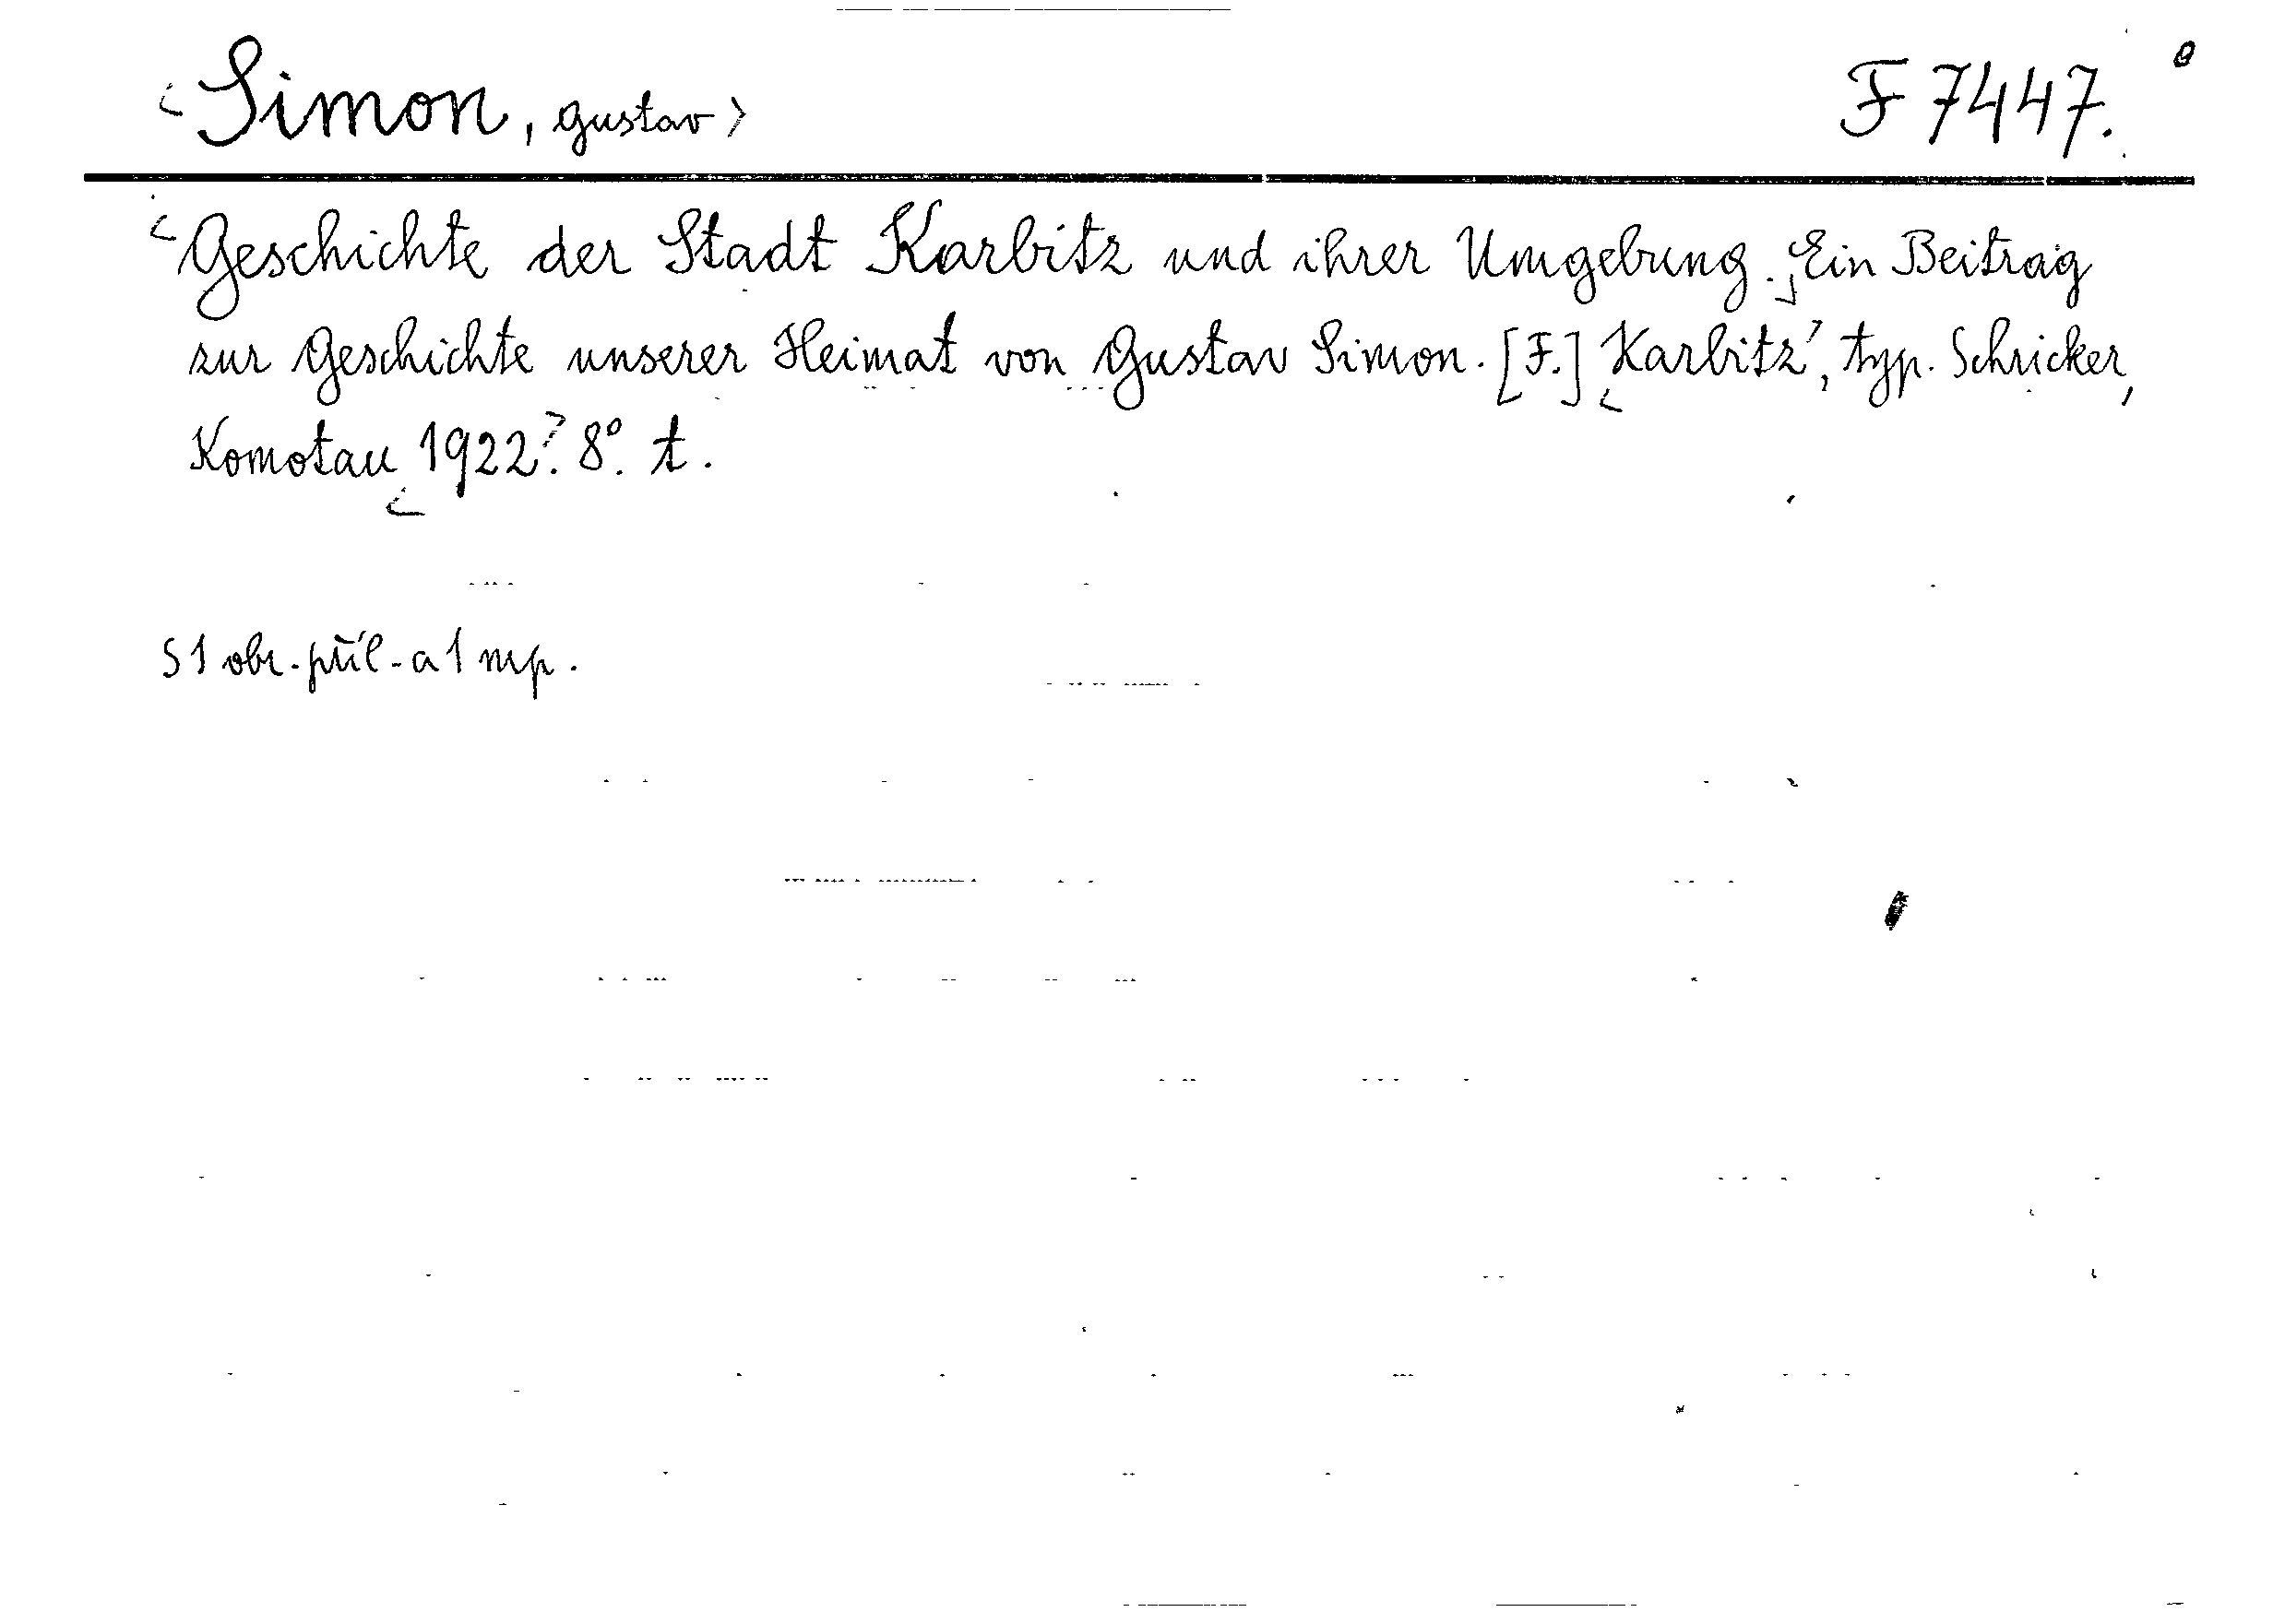 <Simon, Gustav> F 7447.
<Geschichte der Stadt Karbitz und ihrer Umgebung.> Ein Beitrag
zur Geschichte unserer Heimat von Gustav Simon. [F.] <Karbitz>, typ. Schricker,
Komotau <1922>. 8°. t.
S 1 obr. příl. a 1 mp.